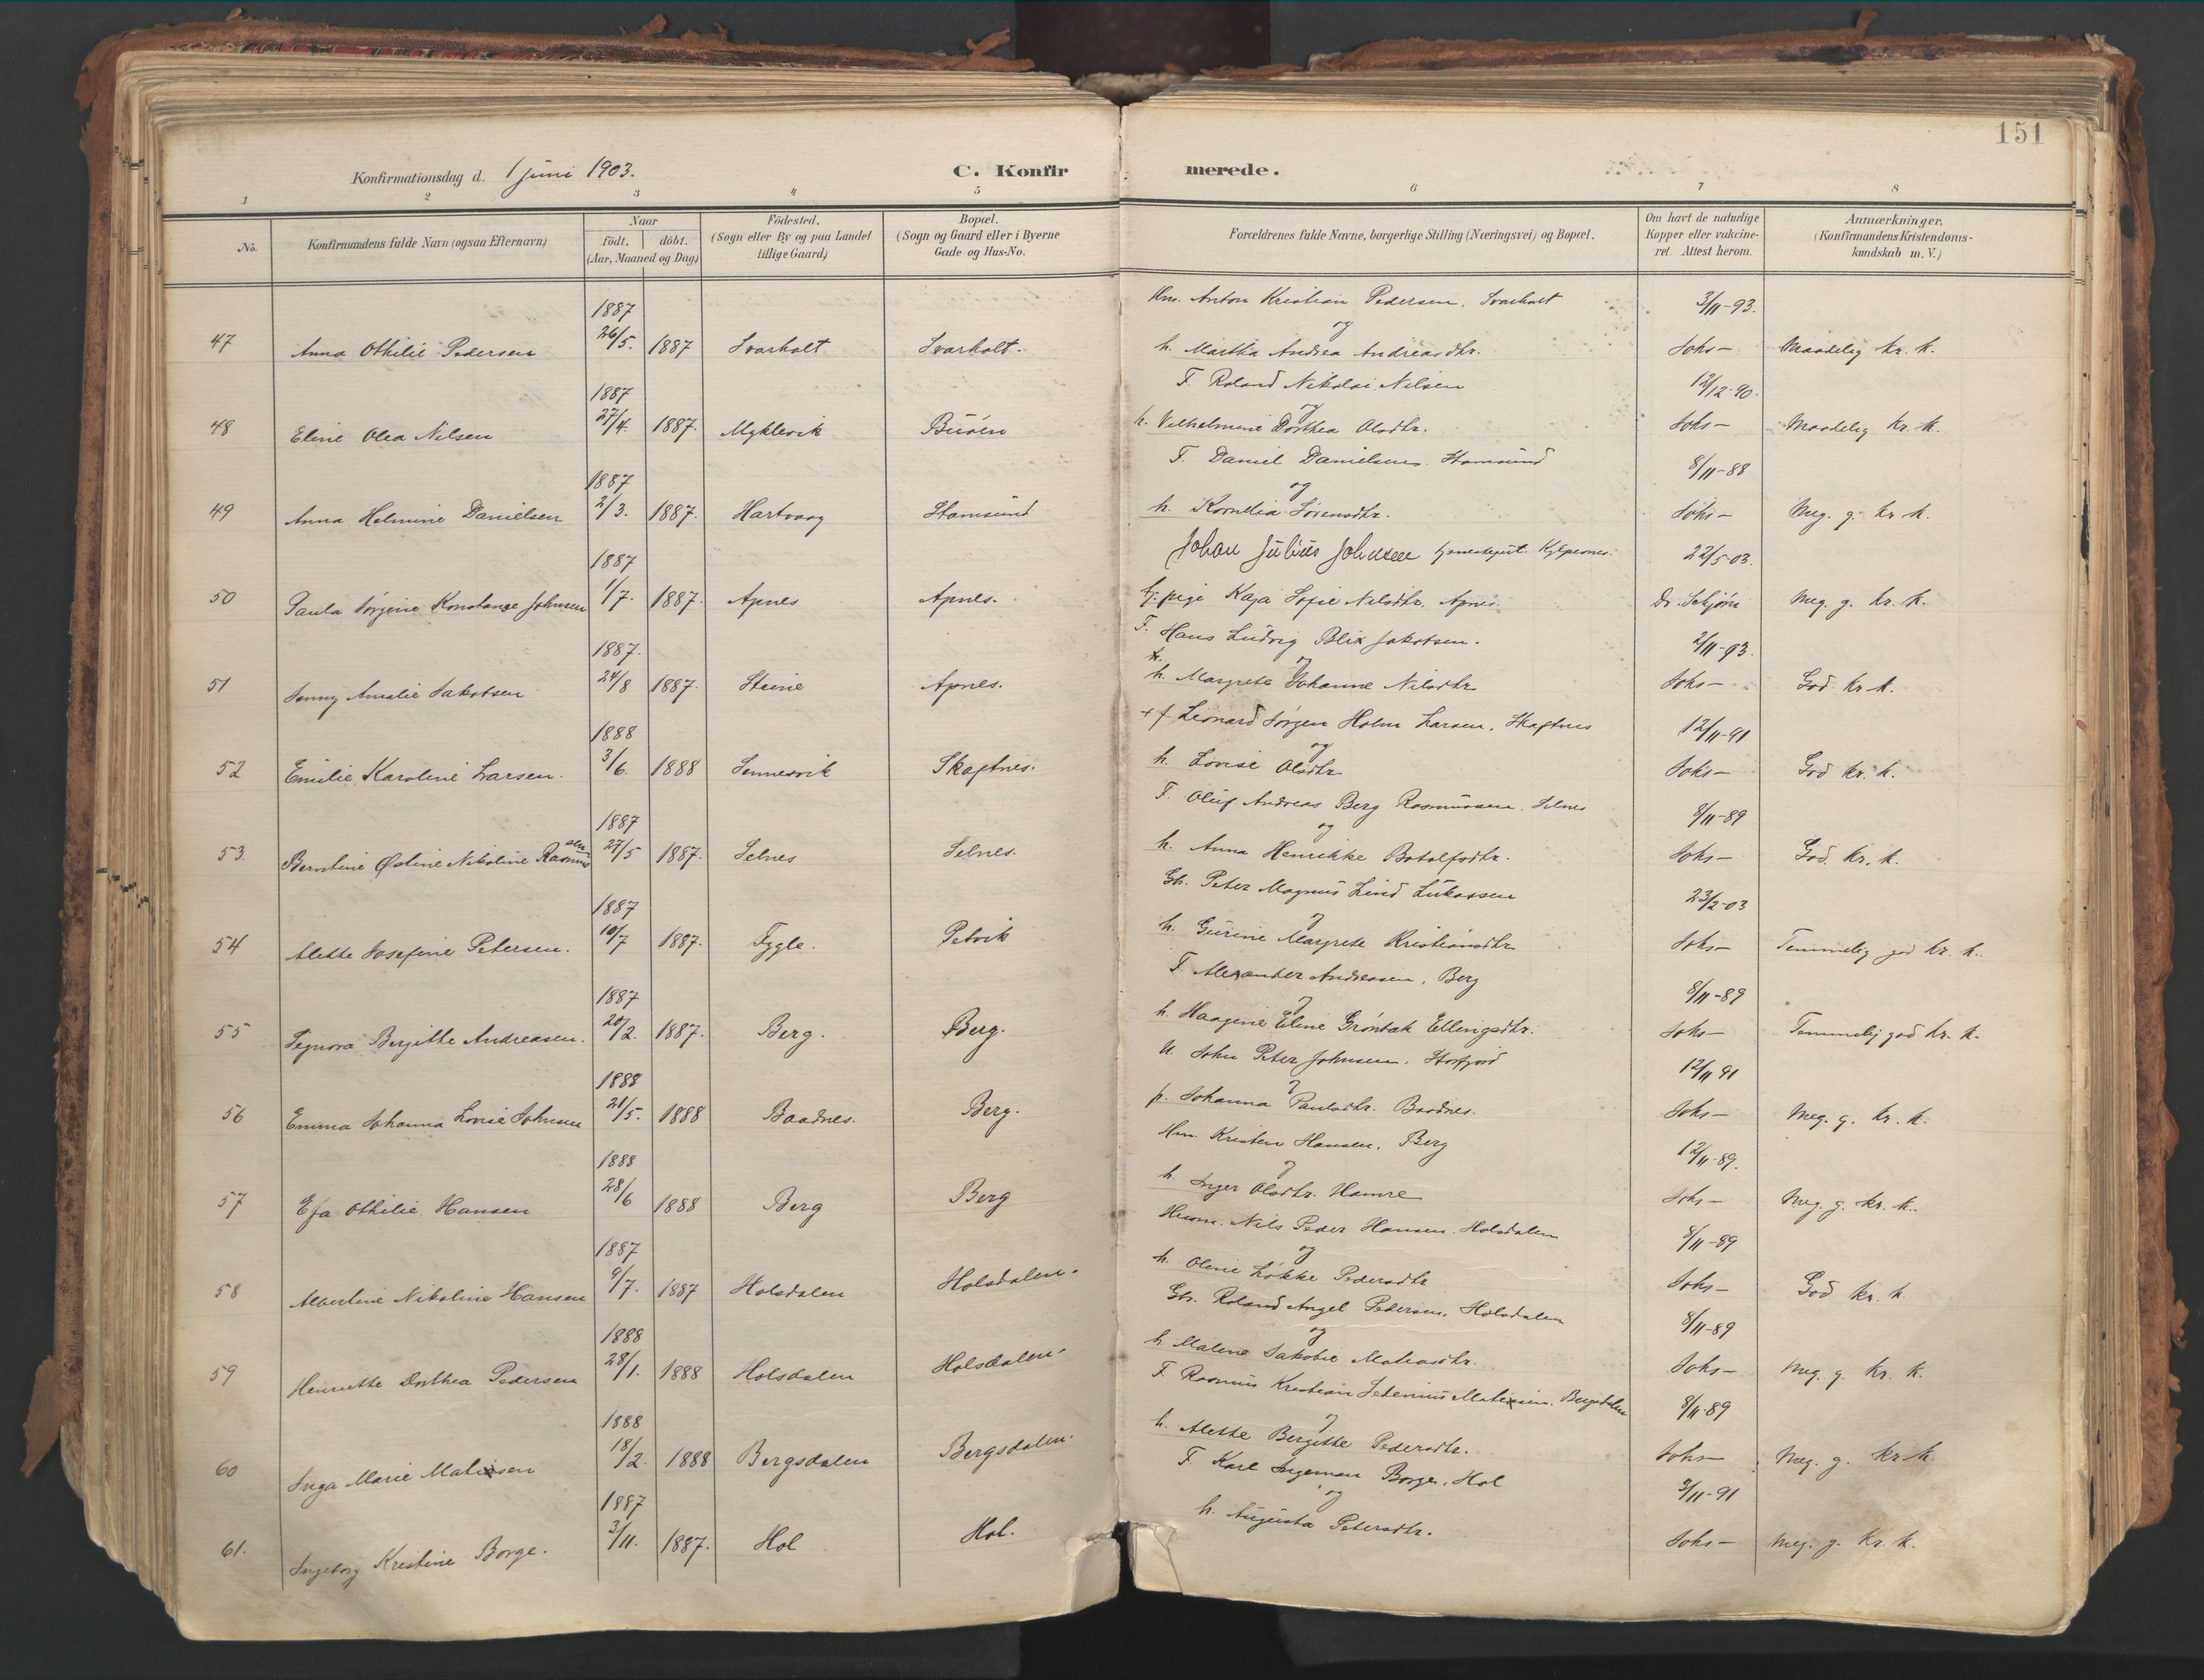 151
Konfirmationsdag d. 1 juni 1903.
C. Konfirmerede.
1 2 3 4 5 6 7 8
No.
Konfirmandens fulde Navn (ogsaa Efternavn)
Naar
födt. döbt.
(Aar, Maaned og Dag)
Födested.
(Sogn eller By og paa Landet
tillige Gaard)
Bopæl.
(Sogn og Gaard eller i Byerne
Gade og Hus-No.
Forældrenes fulde Navne, borgerlige Stilling (Næringsvei) og Bopæl.
Om havt de naturlige
Kopper eller vakcine-
ret. Attest herom.
Anmærkninger.
(Konfirmandens Kristendoms-
kundskab m. V.)
1887 Hm. Anton Kristian Pedersen, Svarholt 3/11-93.
og
47 Anna Othilie Pedersen 26/5. 1887 Svarholt Svarholt. h. Martha Andrea Andreasdtr. Soks- Maadelig kr. k.
1887 F. Roland Nikolai Nilsen 12/12-90.
og
48 Eline Olea Nilsen 27/4. 1887. Myklevik h. Vilhelmine Dorthea Olsdtr. Soks- Maadelig kr. k.
1887 F. Daniel Danielsen. Stamsund 8/11-88
og
49 Anna Helmine Danielsen 2/3. 1887. Hartvaag Stamsund h. Kornelia Sörensdtr. Soks- Meg. g. kr. k.
1887 Johan Julius Johnsen 22/5-03.
50 Paula Jörgine Konstanse Johnsen 1/7. 1887. Apnes Apnes. tj. pige Kaja Sofie Nilsdtr. Apnes. Dr. Schjöm Meg. g. kr. k.
1887. F. Hans Ludvig Blix Jakobsen. 2/11-93.
og
51 Jenny Amalie Jakobsen 24/8 1887. Steine Apnes. h. Margrete Johanne Nilsdtr. Soks- God kr. k.
1888 + f Leonard Jörgen Holm Larsen, Skaftnes 12/11-91
og
52 Emilie Karoline Larsen. 3/6. 1888 Sennesvik Skaftnes. h. Lovise Olsdtr. Soks- God kr. k.
1887 F. Oluf Andreas Berg Rasmussen. Selnes 8/11-89
og
53. Berntine Østine Nikoline Rasmussen 27/5 1887. Selnes Selnes. h. Anna Henrikke Botolfsdtr. Soks- God. kr. k.
1887 Gb. Peter Magnus Lind Lukassen 23/2-03
og
54 Alette Josefine Petersen. 10/7 1887. Fygle. Petvik h. Gurine Margrete Kristiansdtr. Soks- Temmelig god kr. k.
1887 F. Alexander Andreasen, Berg 8/11-89
og
55 Signora Bergitte Andreasen. 20/2. 1887. Berg. Berg. h. Haagine Eline Grönbak Ellingsdtr. Soks- Temmelig god kr. k.
1888 U. John Peter Johnsen. Storfjord 12/11 91
og
56 Emma Johanna Lovise Johnsen 21/5. 1888 Baadnes. Berg. p. Johanna Paulsdtr. Baadnes. Soks- Meg. g. kr. k.
1888 Hm. Kristen Hansen. Berg 12/11-89.
og
57 Efa Othilie Hansen 28/6 1888 Berg Berg h. Inger Olsdtr. Hamre Soks- Meg. g. kr. k.
1887 Husm. Nils Peder Hansen. Holsdalen 8/11-89
og
58 Albertine Nikoline Hansen 9/7. 1887 Holsdalen Holsdalen. h. Oline Lökke Pedersdtr. Soks- God kr. k.
1888 Gbr. Roland Angel Pedersen, Holsdalen 8/11-89
og
59 Henriette Dorthea Pedersen 28/1. 1888 Holsdalen Holsdalen. h. Malene Jakobie Matiasdtr. Soks- Meg. g. kr. k.
1888 F. Rasmus Kristian Matissen. Bergsdalen 8/11-89
og
60 Inga Marie Matissen 18/2. 1888 Bergsdalen Bergsdalen. h. Alette Bergitte Pedersdtr. Soks- Meg. g. kr. k.
1887 F. Karl Ingeman Borge, Hol 3/11-91
og
61. Ingeborg Kristine Borge. 3/11. 1887. Hol Hol. h. Augusta Petersdtr. Soks- Meg. g. kr. k.